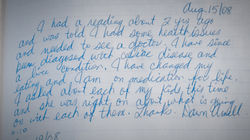 Aug. 15/08
I had a reading about 3 yrs ago
and was told I had some health issues
and needed to see a doctor. I have since
been diagnosed with celiac disease and
a liver condition. I have changed my
eating and I am on medication for life.
I asked about each of my kids, this time
and she was right on about what is going
on with each of them. Thanks. Dawn